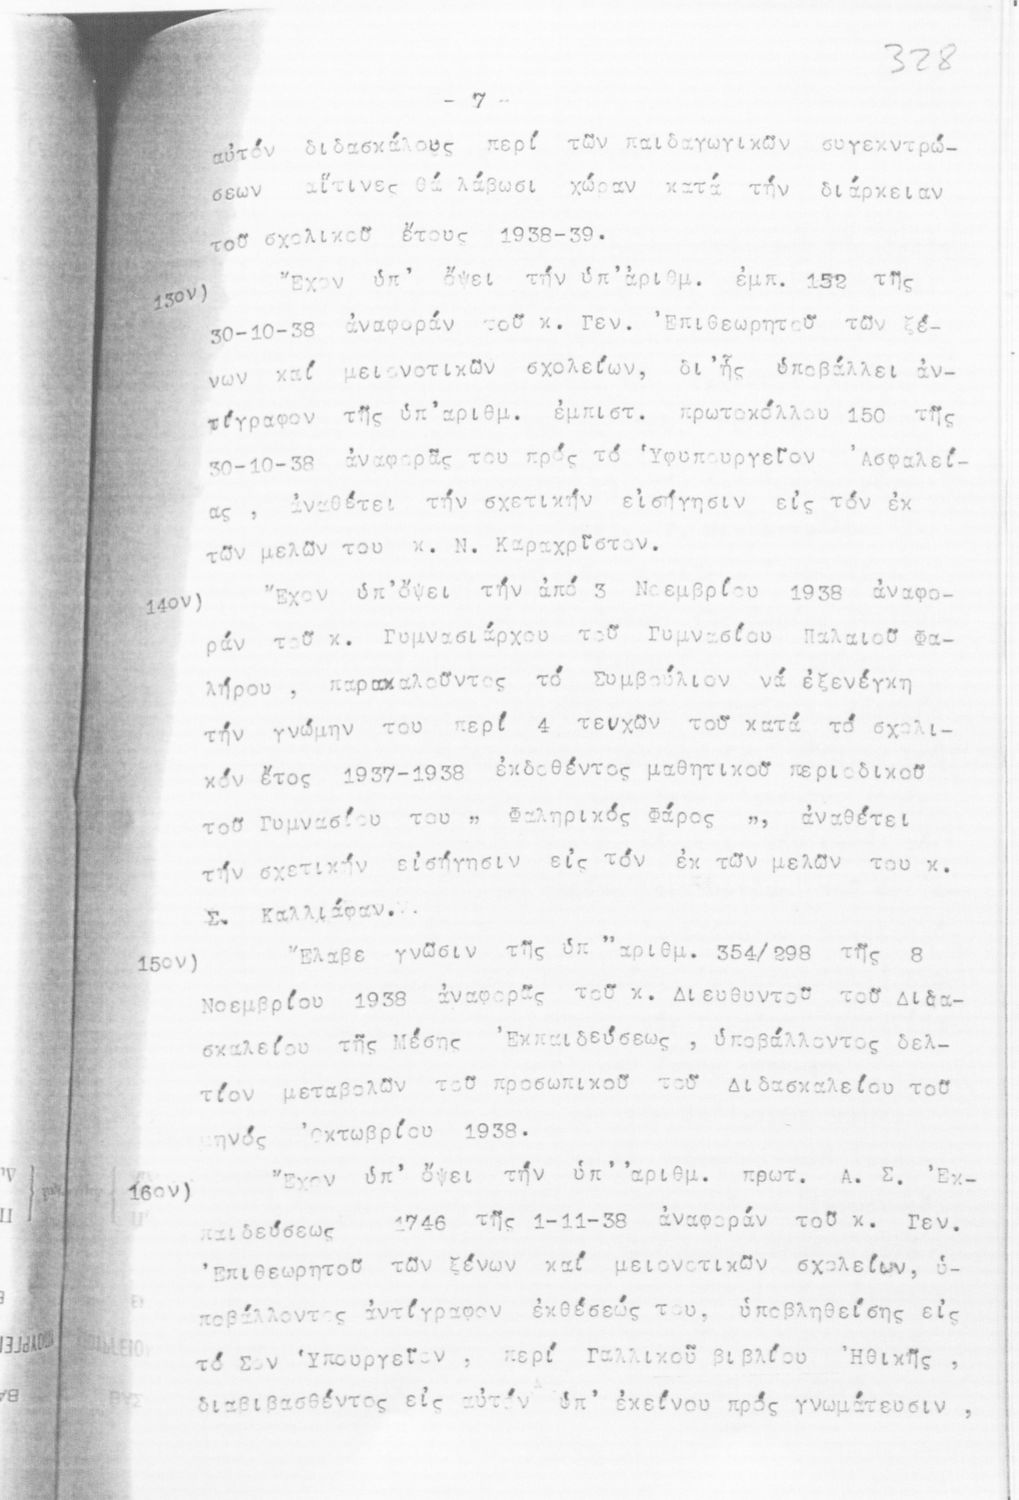 328
- 7 -
αὐτόν διδασκάλους περί τῶν παιδαγωγικῶν συγεκντρώ-
σεων αἵτινες θά λάβωσι χώραν κατά τήν διάρκειαν
τοῦ σχολικοῦ ἔτους 1938-39.
13ον) Ἔχον ὑπ' ὄψει τήν ὑπ'ἀριθμ. ἐμπ. 152 τῆς
30-10-38 ἀναφοράν τοῦ κ. Γεν. Ἐπιθεωρητοῦ τῶν ξέ-
νων καί μειονοτικῶν σχολείων, δι'ἧς ὑποβάλλει ἀν-
τίγραφον τῆς ὑπ'αριθμ. ἐμπιστ. πρωτοκόλλου 150 τῆς
30-10-38 ἀναφορᾶς του πρός τό Ὑφυπουργεῖον Ἀσφαλεί-
ας , ἀναθέτει τήν σχετικήν εἰσήγησιν εἰς τόν ἐκ
τῶν μελῶν του κ. Ν. Καραχρῖστον.
14ον) Ἔχον ὑπ'ὄψει τήν ἀπό 3 Νοεμβρίου 1938 ἀναφο-
ράν τοῦ κ. Γυμνασιάρχου τοῦ Γυμνασίου Παλαιοῦ Φα-
λήρου , παρακαλοῦντος τό Συμβούλιον νά ἐξενέγκη
τήν γνώμην του περί 4 τευχῶν τοῦ κατά τό σχολι-
κόν ἔτος 1937-1938 ἐκδοθέντος μαθητικοῦ περιοδικοῦ
τοῦ Γυμνασίου του „ Φαληρικός Φάρος „, ἀναθέτει
τήν σχετικήν εἰσήγησιν εἰς τόν ἐκ τῶν μελῶν του κ.
Σ. Καλλιάφαν.
15ον) Ἔλαβε γνῶσιν τῆς ὑπ "αριθμ. 354/298 τῆς 8
Νοεμβρίου 1938 ἀναφορᾶς τοῦ κ. Διευθυντοῦ τοῦ Διδα-
σκαλείου τῆς Μέσης Ἐκπαιδεύσεως , ὑποβάλλοντος δελ-
τίον μεταβολῶν τοῦ προσωπικοῦ τοῦ Διδασκαλείου τοῦ
μηνός Ὀκτωβρίου 1938.
16ον) Ἔχον ὑπ' ὄψει τήν ὑπ''αριθμ. πρωτ. Α. Σ. Ἐκ-
παιδεύσεως 1746 τῆς 1-11-38 ἀναφοράν τοῦ κ. Γεν.
Ἐπιθεωρητοῦ τῶν ξένων καί μειονοτικῶν σχολείων, ὑ-
ποβάλλοντος ἀντίγραφον ἐκθέσεώς του, ὑποβληθείσης εἰς
τό Σον Ὑπουργεῖον , περί Γαλλικοῦ βιβλίου Ἠθικῆς ,
διαβιβασθέντος εἰς αὐτόν ὑπ' ἐκείνου πρός γνωμάτευσιν ,